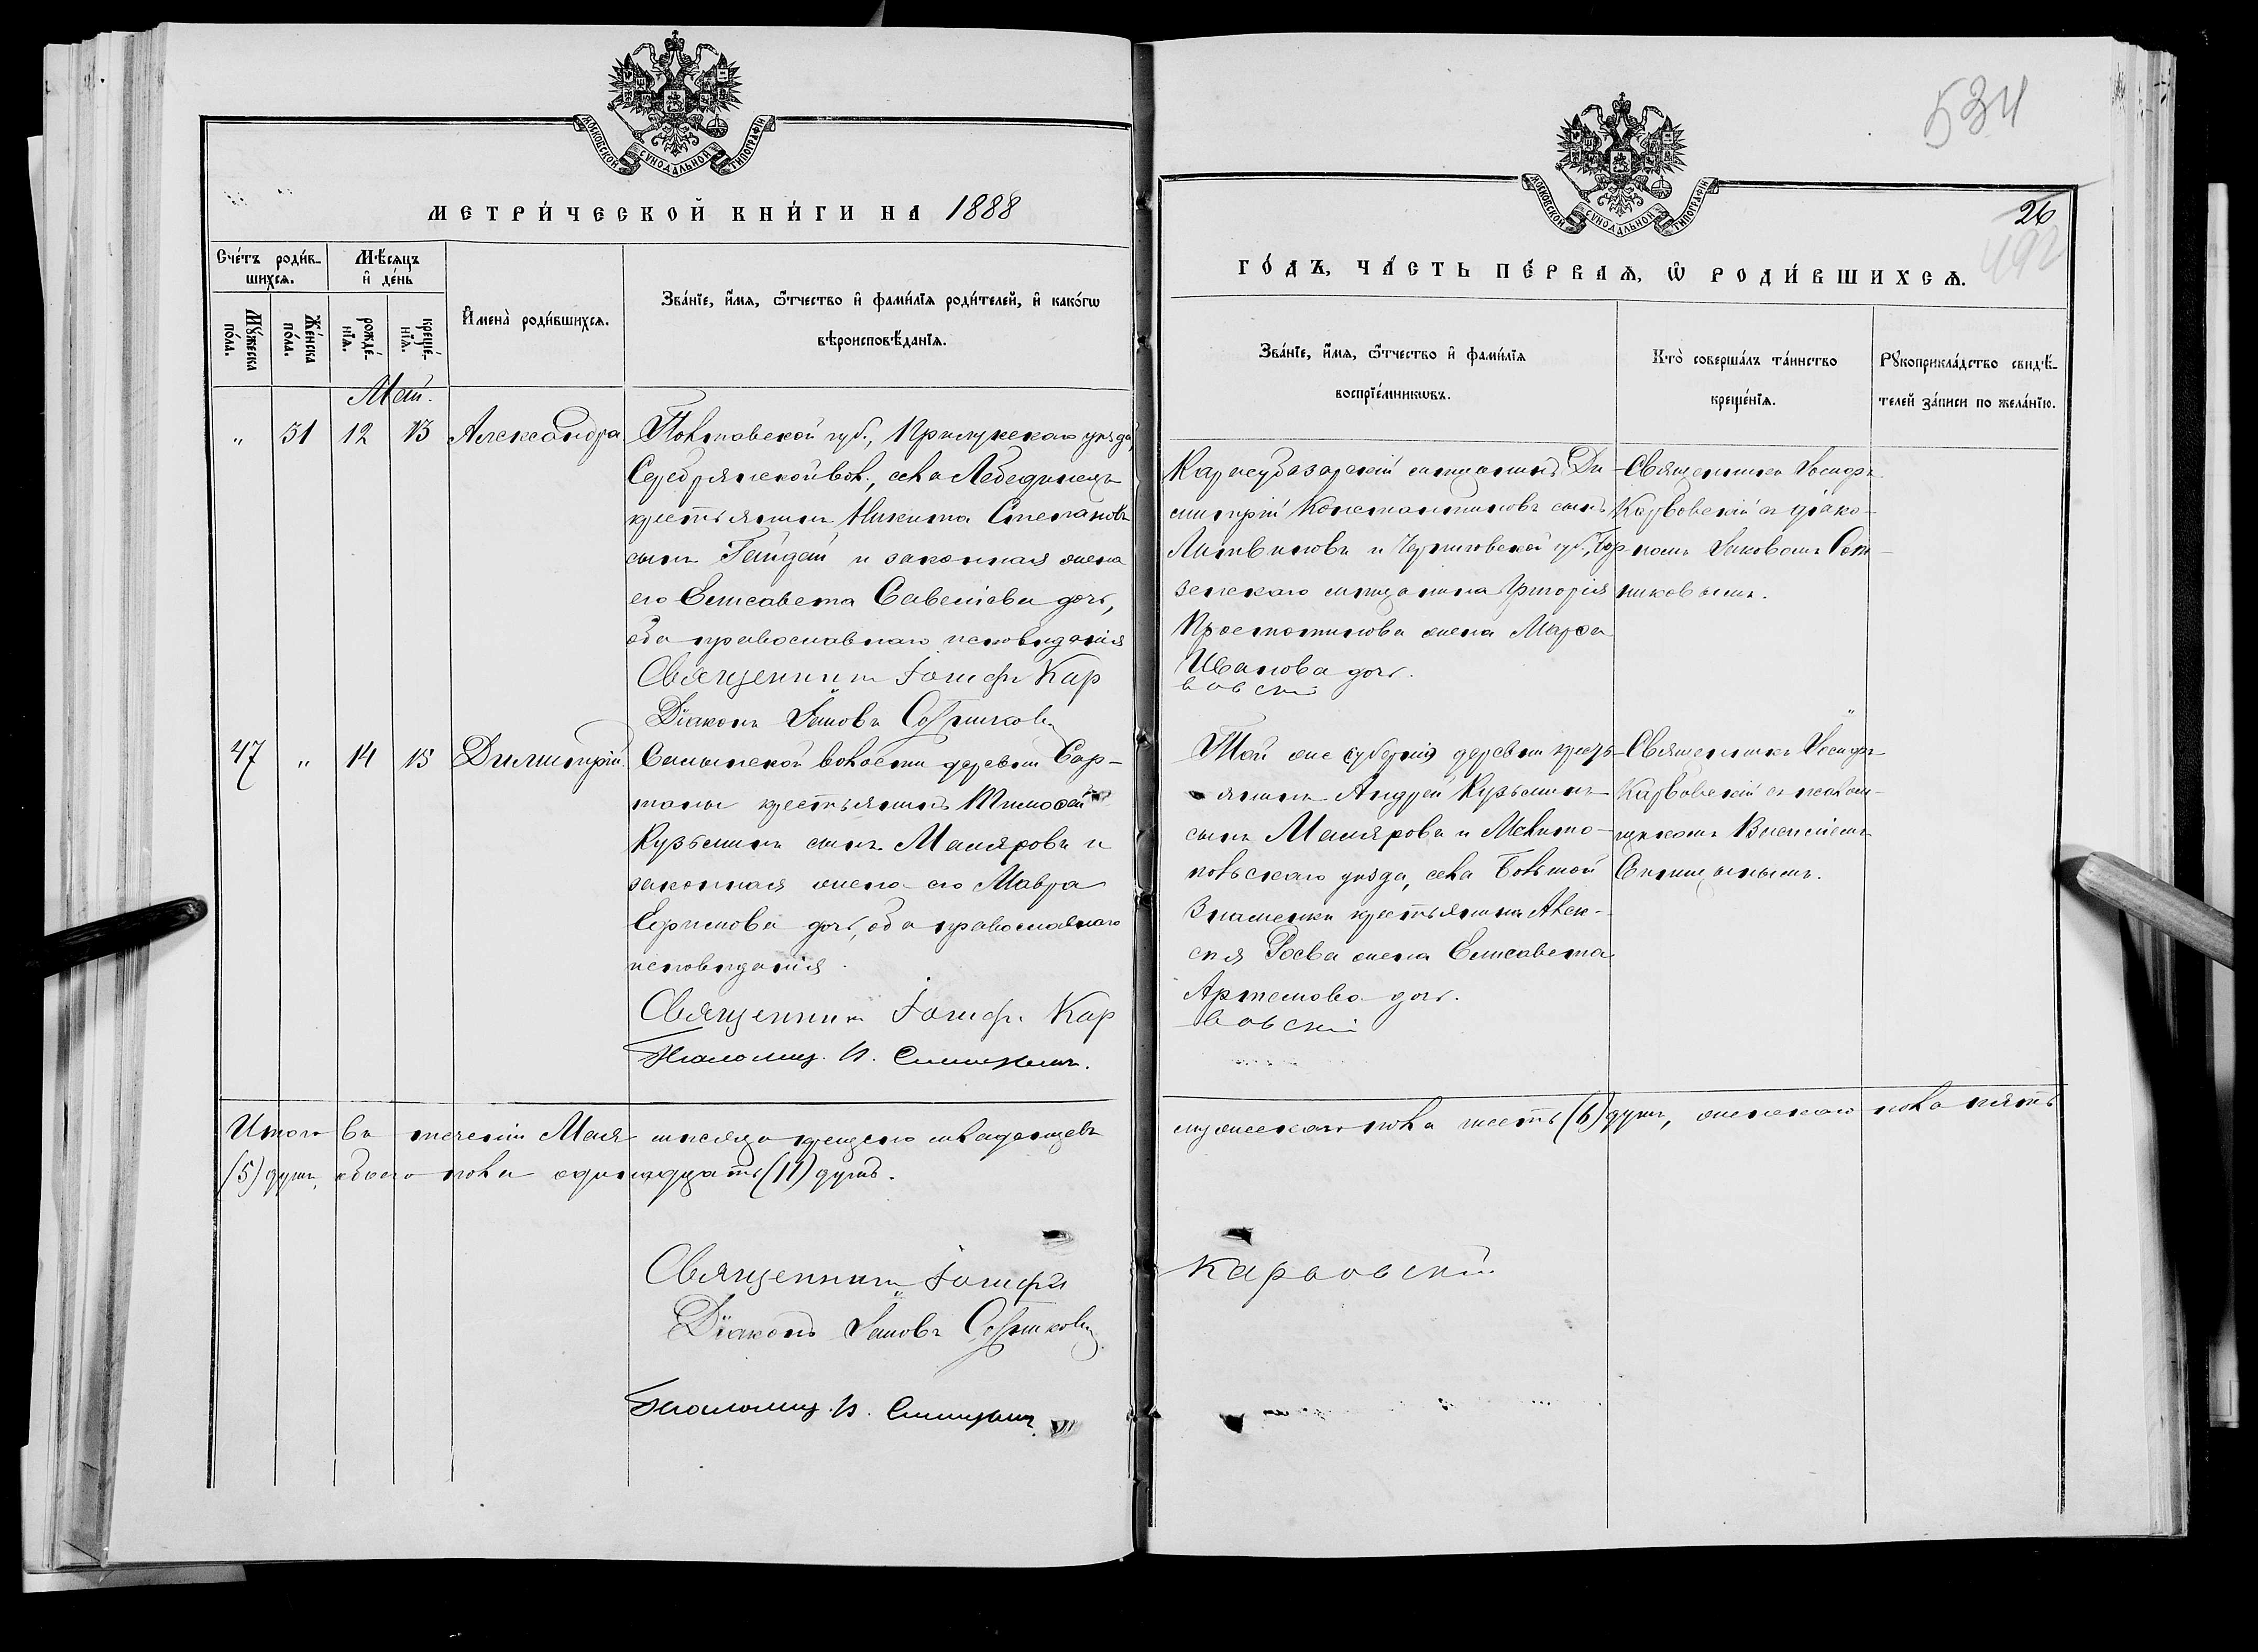 МОСКОВСКОЙ СѴНОДАЛЬНОЙ ТИПОГРАФІИ
МЕТРИ́ЧЕСКОЙ КНИ́ГИ НА 1888
Сче́тъ роди́в-
шихсѧ.
Мѣ́сѧцъ
и҆ де́нь
Мꙋ́жеска
по́ла.
Же́нска
по́ла.
рожде́-
нїѧ.
креще́-
нїѧ.
И҆мена̀ роди́вшихсѧ.
Зва́нїе, и҆́мѧ, ѻ҆́тчество и҆ фами́лїѧ роди́телей, и҆ како́гѡ
вѣроисповѣ́данїѧ.
Май.
„ 31 12 13 Александра
Полтавской губ., Прилукскаго уѣзда,
Серебрянской вол., села Лебединецъ
крестьянинъ Никита Степановъ
сынъ Гайдай и законная жена
его Елисавета Савелiева дочь,
оба православнаго исповѣданія
Священникъ Іосифъ Кар
Діаконъ Іаковъ Сотниковъ
47 „ 14 15 Димитрій.
волости деревни Сар-
таны крестьянинъ Тимоѳей
Кузьминъ сынъ Маляровъ и
законная жена его Мавра
дочь, оба православнаго
исповѣданія.
Священникъ Іосифъ Кар
Псаломщ. В. Синицынъ.
Итого въ теченіи Мая мѣсяца крещено младенцевъ
(5) душъ, обоего пола одинадцать (11) душъ.
Священникъ Іосифъ
Діаконъ Іаковъ Сотниковъ
Псаломщ. В. Синицынъ.
534
МОСКОВСКОЙ СѴНОДАЛЬНОЙ ТИПОГРАФІИ
26
492
ГО́ДЪ, ЧА́СТЬ ПЕ́РВАѦ, Ѡ҆ РОДИ́ВШИХСѦ.
Зва́нїе, и҆́мѧ, ѻ҆́тчество и҆ фами́лїѧ
воспрїе́мникѡвъ.
Кто̀ соверша́лъ та́инство
креще́нїѧ.
Рꙋкоприкла́дство свидѣ́-
телей за́писи по жела́нїю.
Карасубазарскій мѣщанинъ Ди-
митрій Константиновъ сынъ
Литвиновъ и Черниговской губ., Бор-
зенскаго мѣщанина Григорія
жена Марѳа
Иванова дочь.
вовскій
Священникъ Іосифъ
Карвовскій съ діако-
номъ Іаковомъ Сот-
никовымъ.
Той же губерніи деревни кресть-
янинъ Андрей Кузьминъ
сынъ Маляровъ и Мелито-
польскаго уѣзда, села Большой
Знаменки крестьянина Алек-
сѣя жена Елисавета
Артемова дочь.
вовскій
Священникъ Іосифъ
Карвовскій съ псалом-
щикомъ
Синицынымъ.
мужескаго пола шесть (6) душъ, женскаго пола пять
Карвовскій